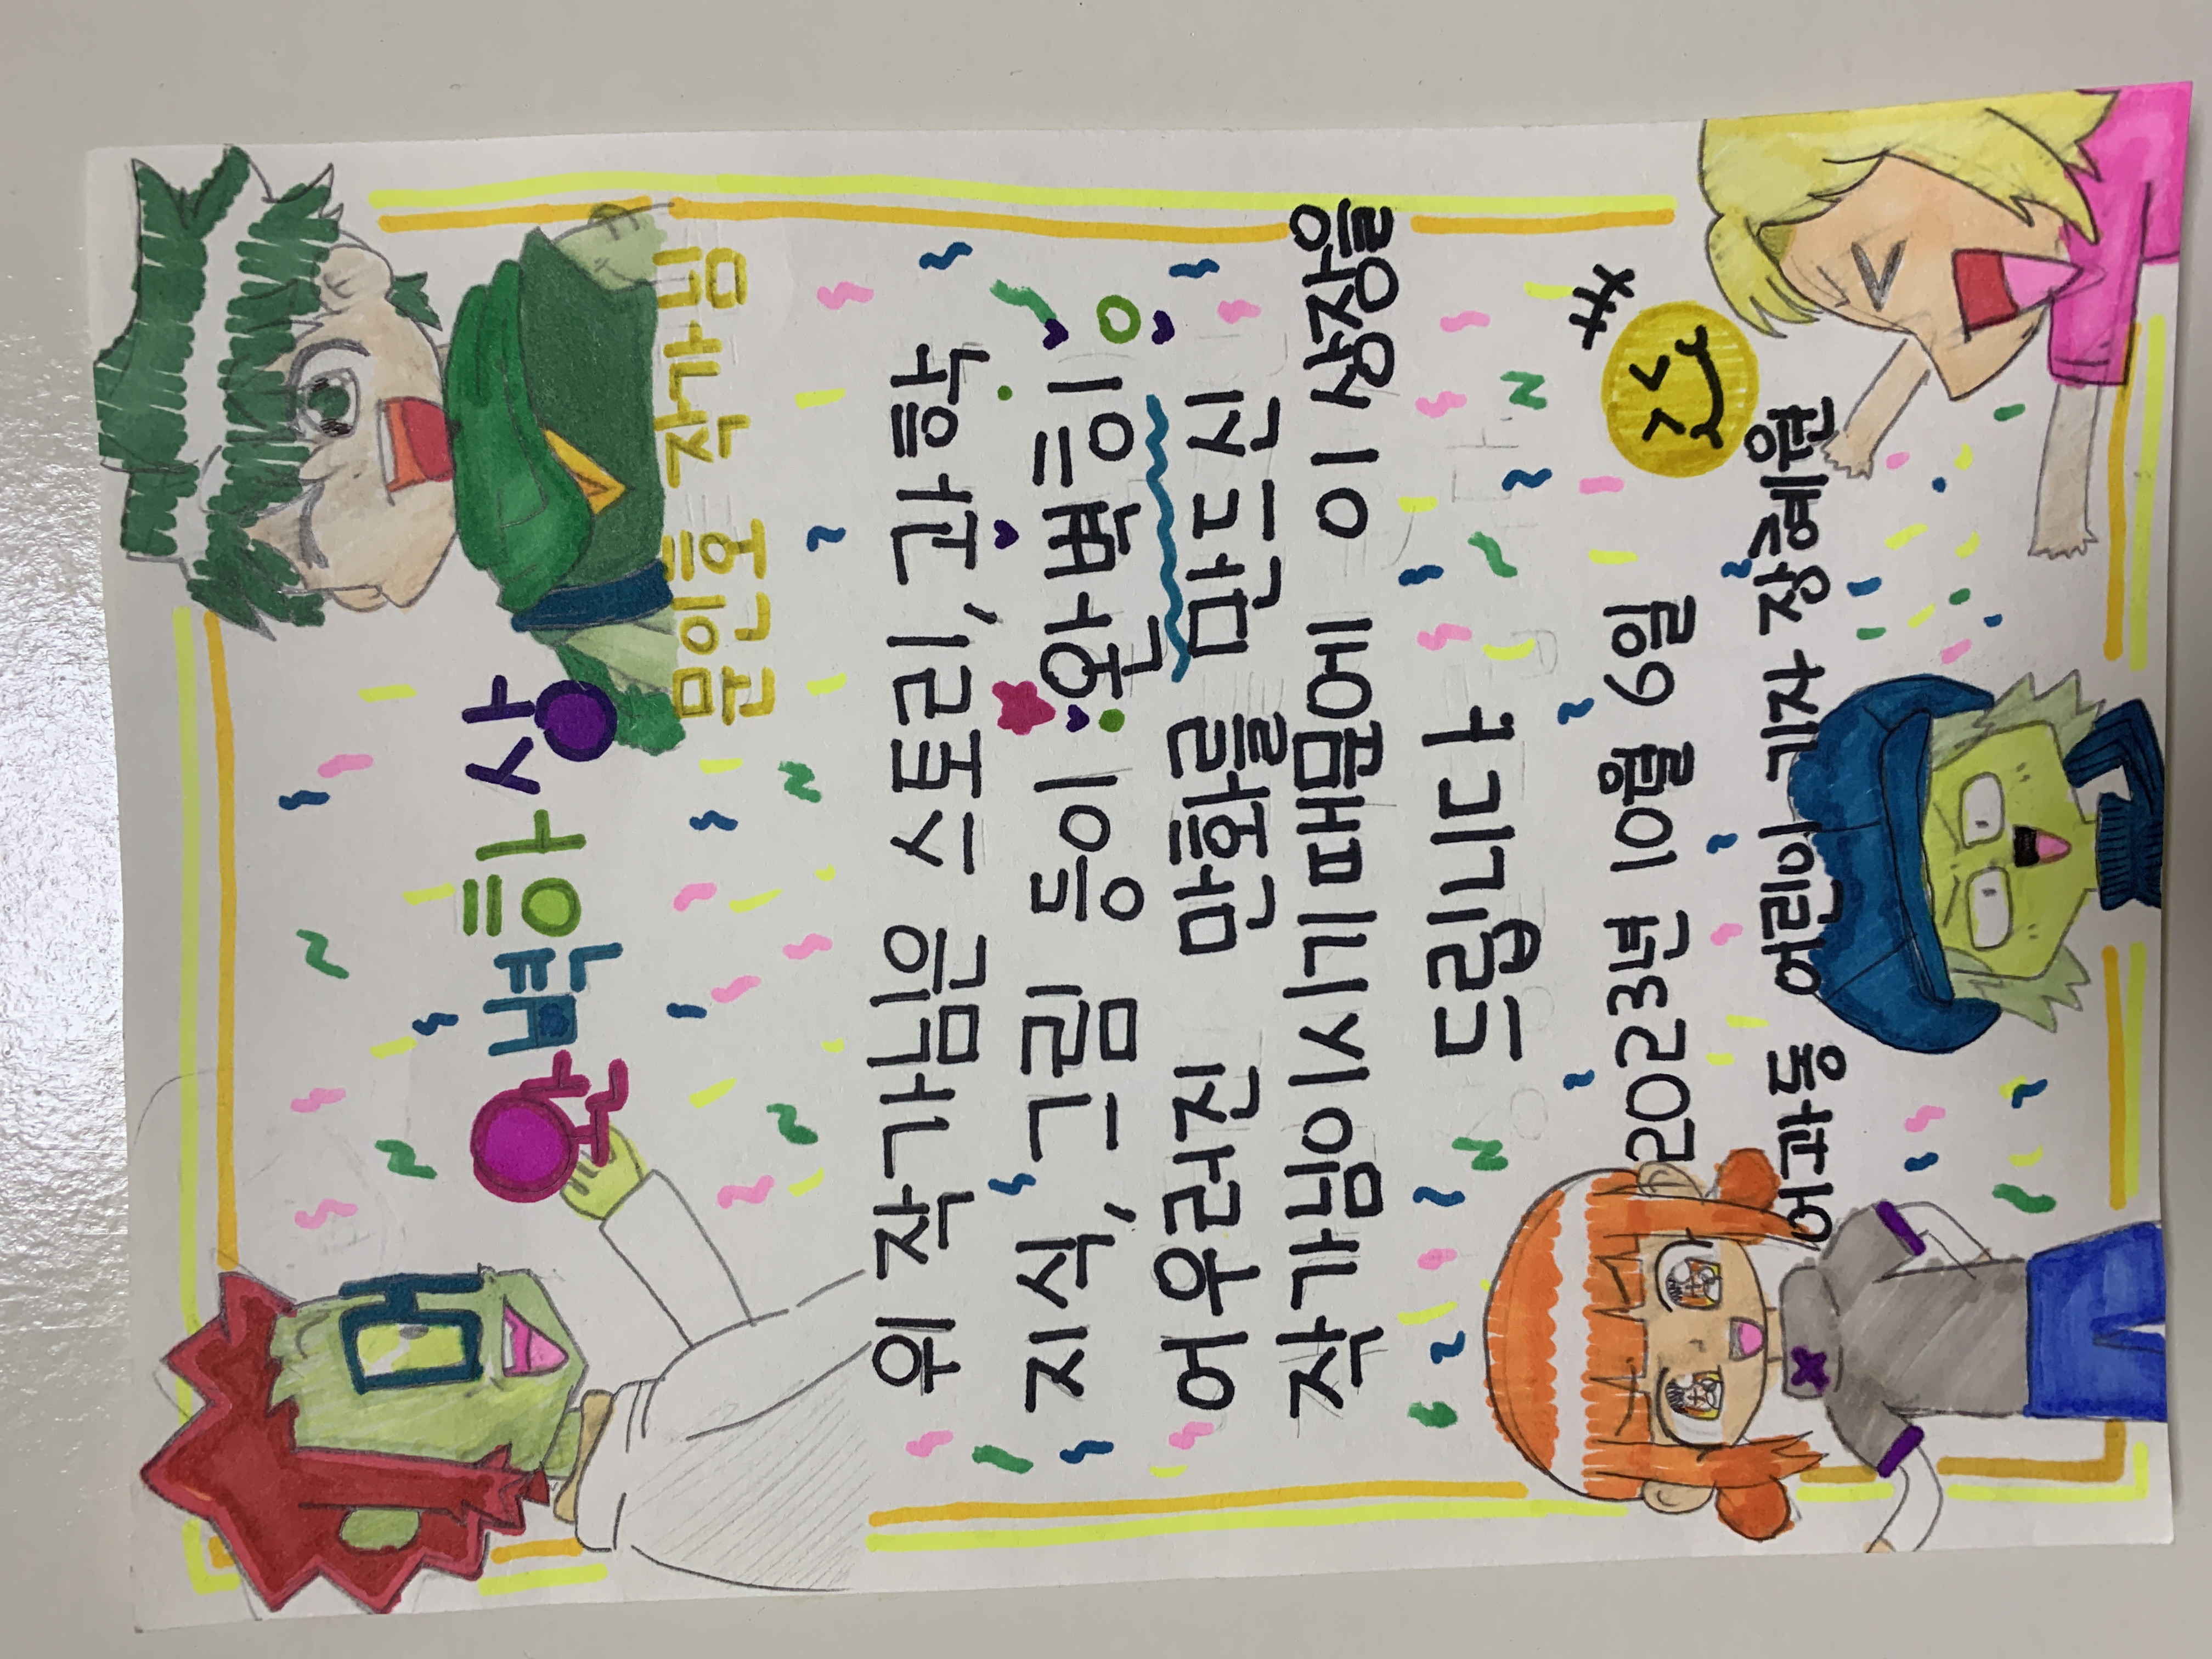 완벽하 상
문인호 작가님
위 작가님은 스토리, 과학
지식, 그림 등이 완벽히
어우러진 만화를 만드신
작가님이시기 때문에 이 상장을
드립니다
2023년 10월 6일
어과동 어린이 기자 장혜원